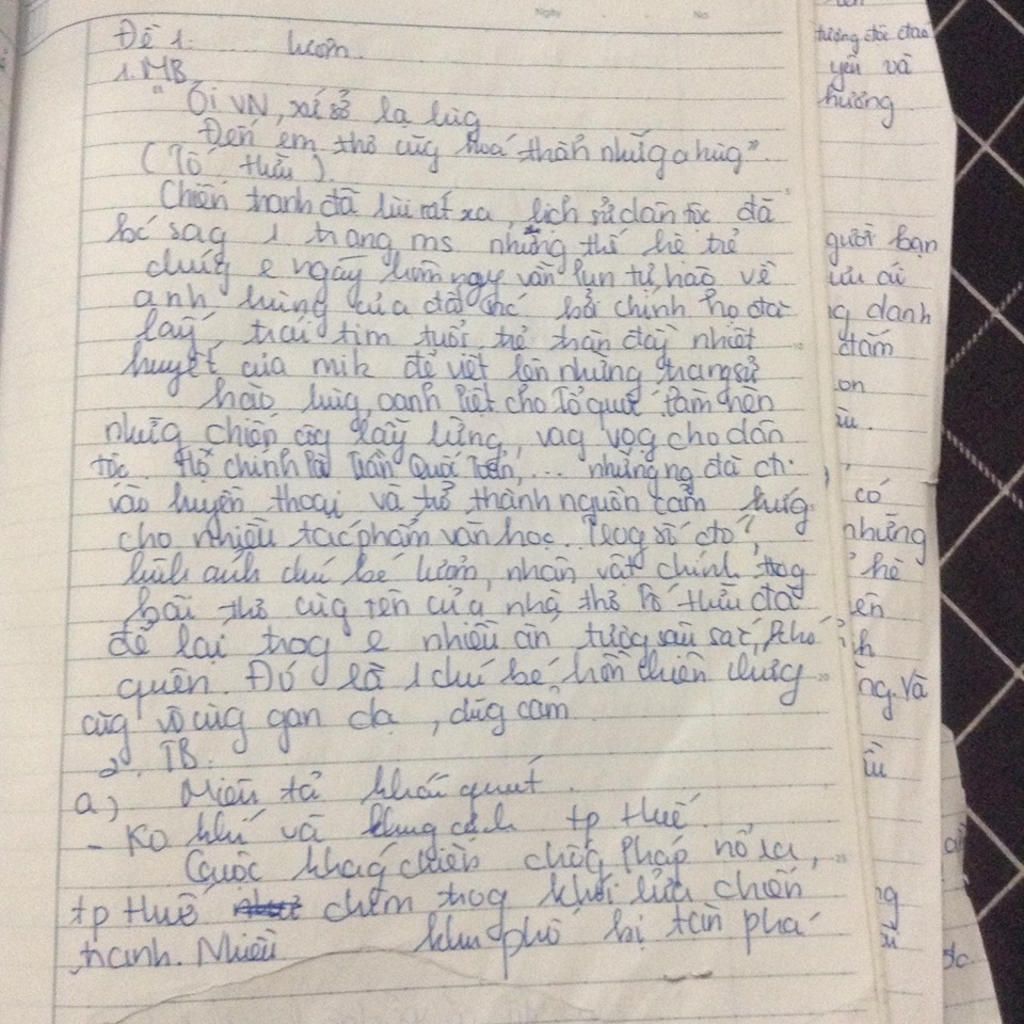 Ngày No
Đề 1. Lượm.
1. MB
"Ôi VN, xứ sở lạ lùg
Đến em thơ cũg hoá thành nhữg a hùg".
(Tố Hữu).
Chiến tranh đã lùi rất xa, lịch sử dân tộc đã
bc sag 1 trang ms nhưng thế hệ trẻ
chúg e ngày hôm nay vẫn lun tự hào về
anh hùng của đất nc bởi chính họ đã
lấy trái tim tuổi trẻ tràn đầy nhiệt
huyết của mik để viết lên những trang sử
hào hùg, oanh liệt cho Tổ quốc, làm nên
nhữg chiến côg lẫy lừng, vag vọg cho dân
tộc. Họ chính là Trần Quốc Toản, ... những ng đã đi
vào huyền thoại và trở thành nguồn cảm hứg
cho nhiều tác phẩm văn học. Trog số đó,
hình ảnh chú bé Lượm, nhân vật chính trog
bài thơ cùg tên của nhà thơ Tố Hữu đã
để lại trog e nhiều ấn tượg sâu sắc, khó
quên. Đó là 1 chú bé hồn nhiên nhưg
cũg vô cùg gan dạ, dũg cảm
2. TB.
a) Miêu tả khái quát.
- Ko khí và khug cảnh tp Huế.
Cuộc khág chiến chốg Pháp nổ ra,
tp Huế chìm trog khói lửa chiến
tranh. Nhiều khu phố bị tàn phá
tượng độc đáo
yêu và
hương.
người bạn
ưu ái
danh
đắm
on
có
những
hè
ên
ng. Và